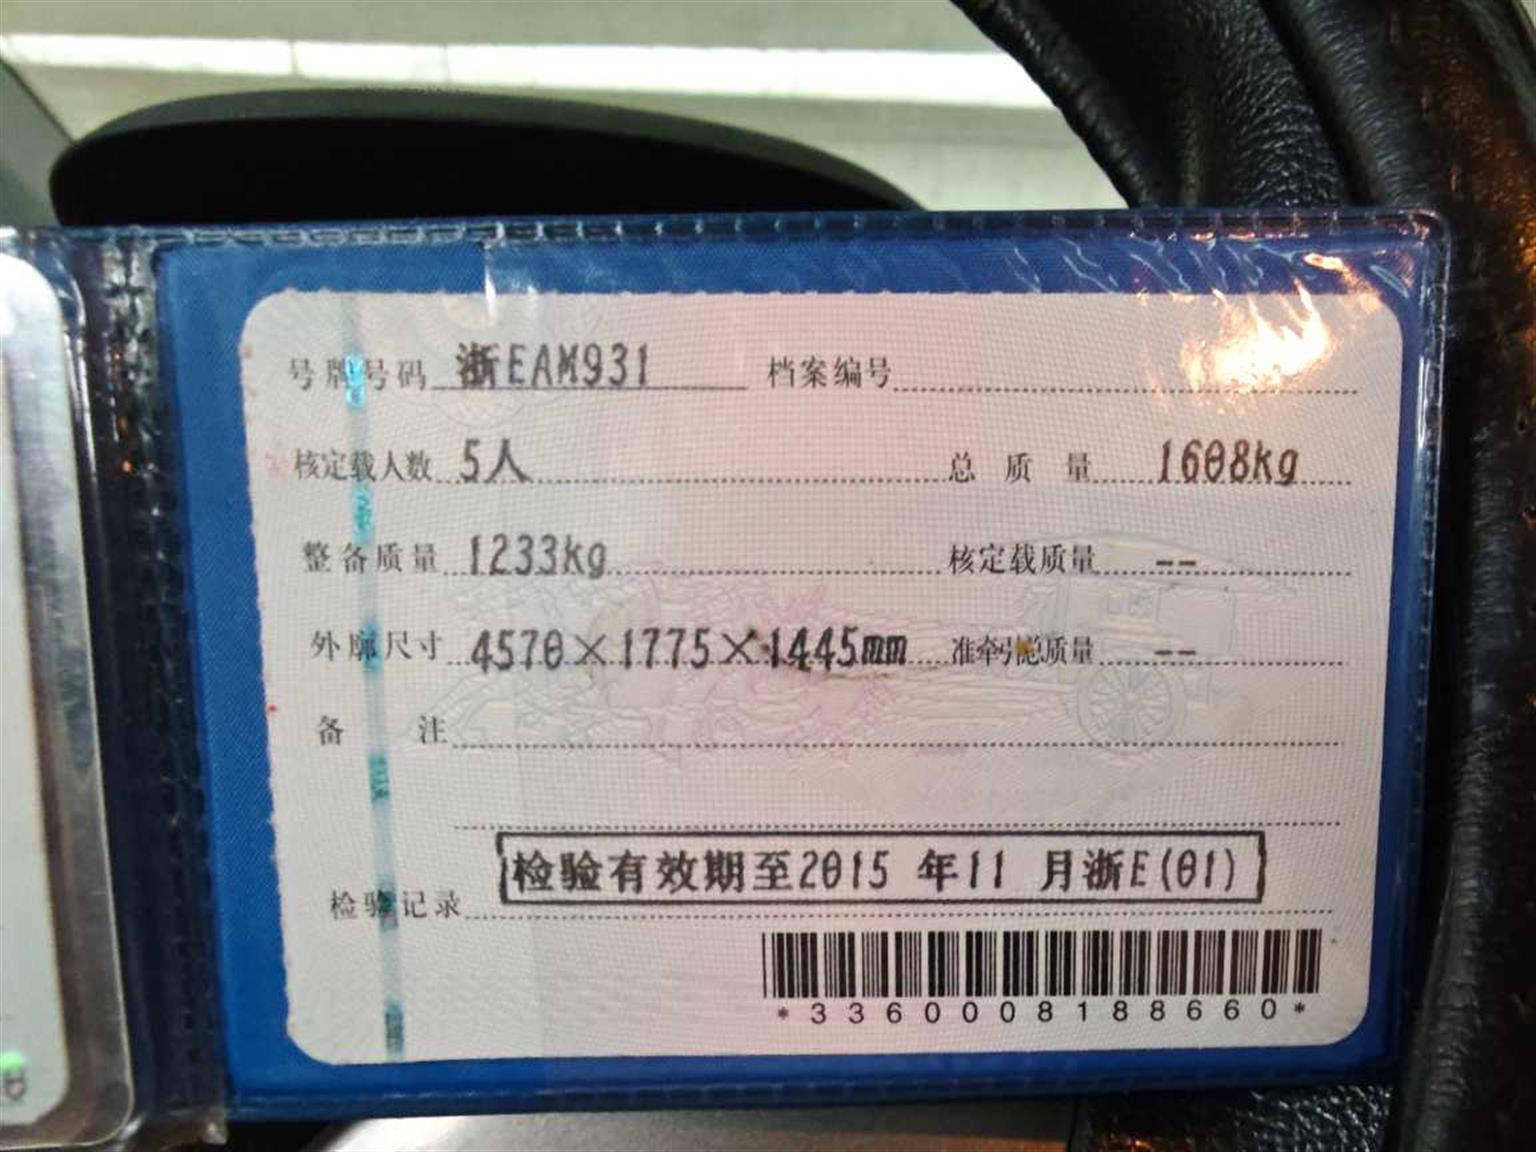 号牌号码 浙EAM931 档案编号
核定载人数 5人 总质量 1608kg
整备质量 1233kg 核定载质量 --
外廓尺寸 4570×1775×1445mm 准牵引总质量 --
备注
检验有效期至2015 年11 月浙E(01)
检验记录
*3360008188660*